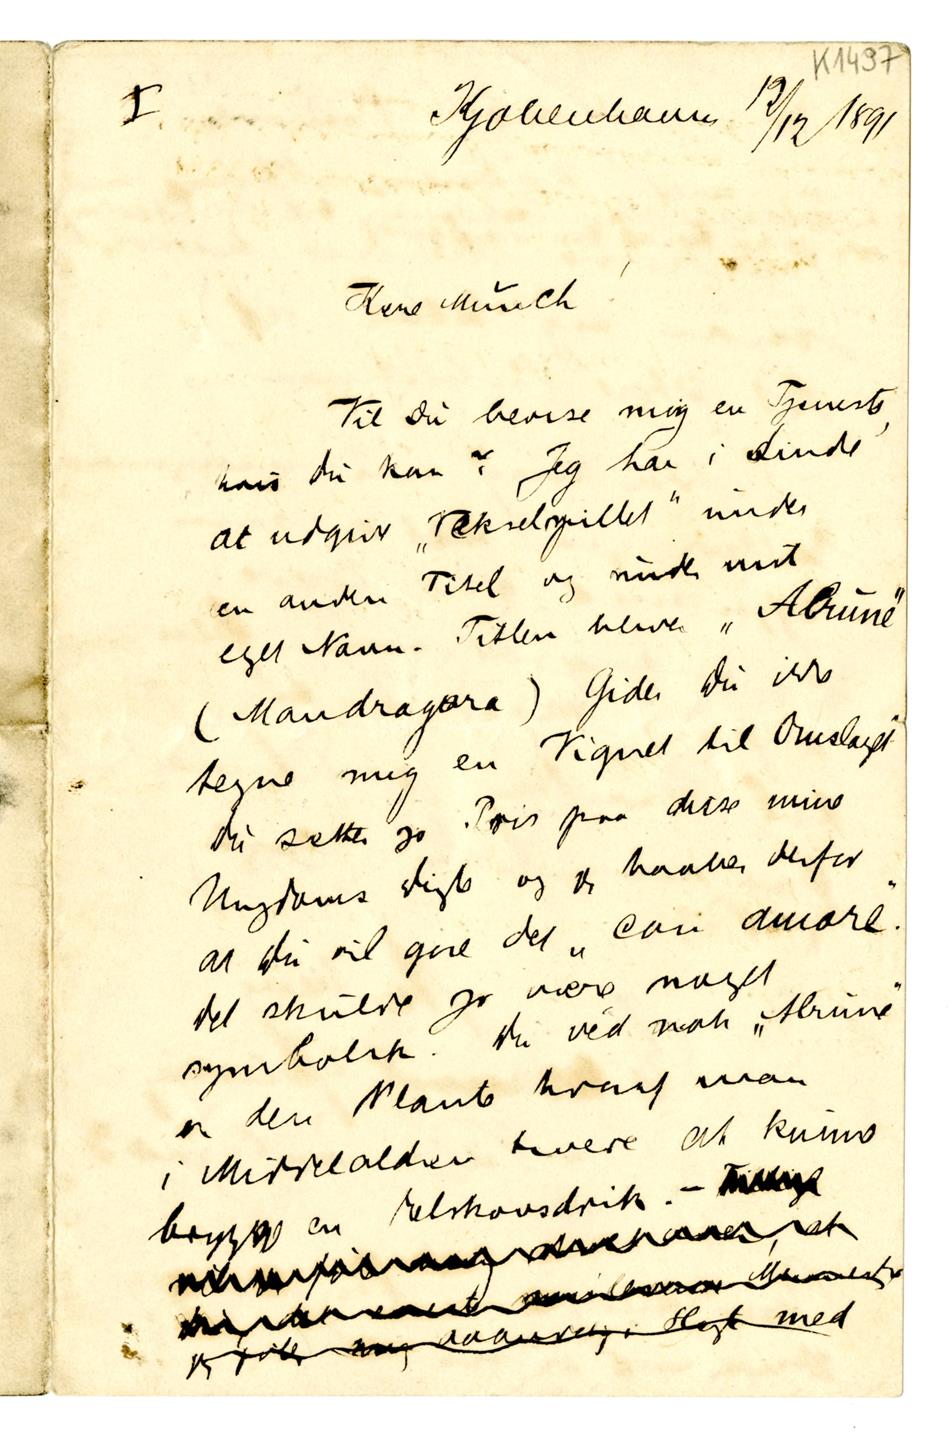 K1497
I
Kjøbenhavn 12/12 1891
Kære Munch!
Vil Du bevise mig en Tjeneste,
hvis du kan? Jeg har i Sinde
at udgive „Vekselspillet" under
en anden Titel og under mit
eget Navn. Titlen bliver „Alrune"
(Mandragora) Gider Du ikke
tegne mig en Vignet til Omslaget
Du sætter jo Pris paa disse mine
Ungdoms digte og jeg haaber derfor
at Du vil gøre det „con amore".
Det skulde jo være noget
symbolisk. Du véd nok „Alrune"
er den Plante hvoraf man
i Middelalderen troede at kunne
brygge en Elskovsdrik. –
jeg føler mig i Slægt med